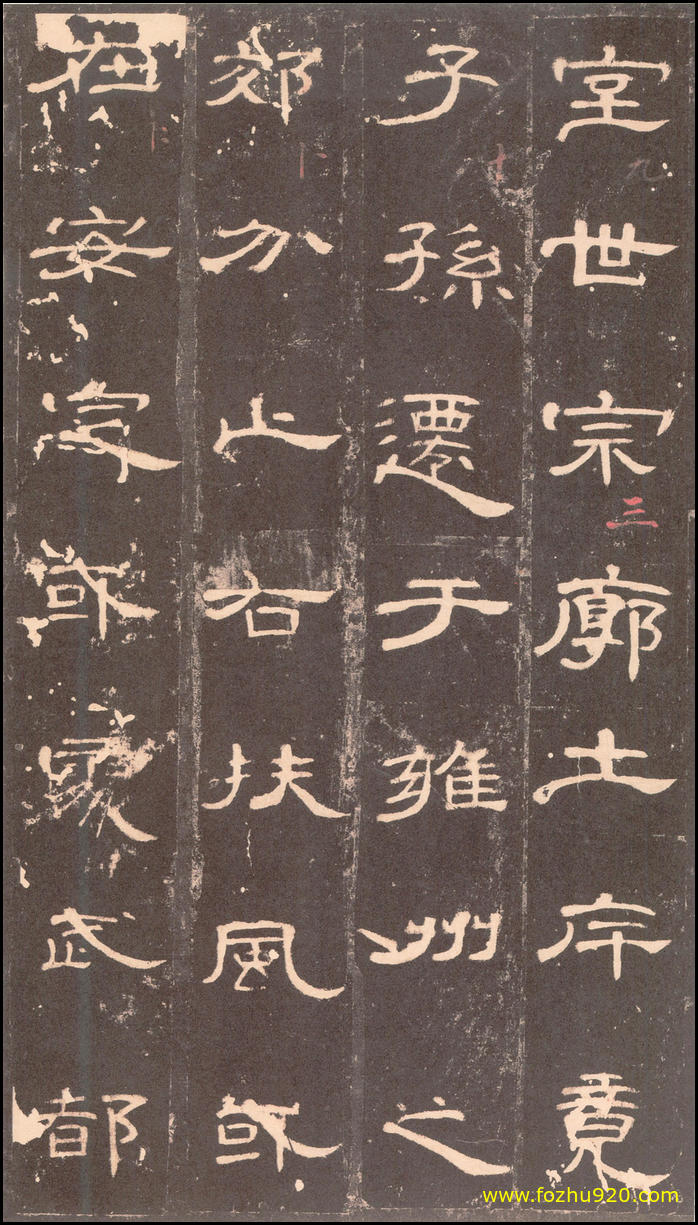 室世宗廓土斥竟
子孫遷于雍州之
郊分止右扶風或
在安定或處武都
九
三
十
www.fozhu920.com